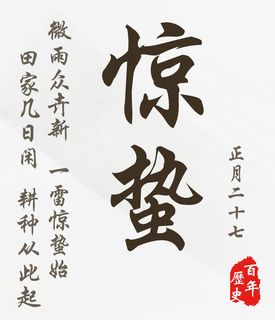 正月二十七
百年
歷史
惊蛰
微雨众卉新 一雷惊蛰始
田家几日闲 耕种从此起